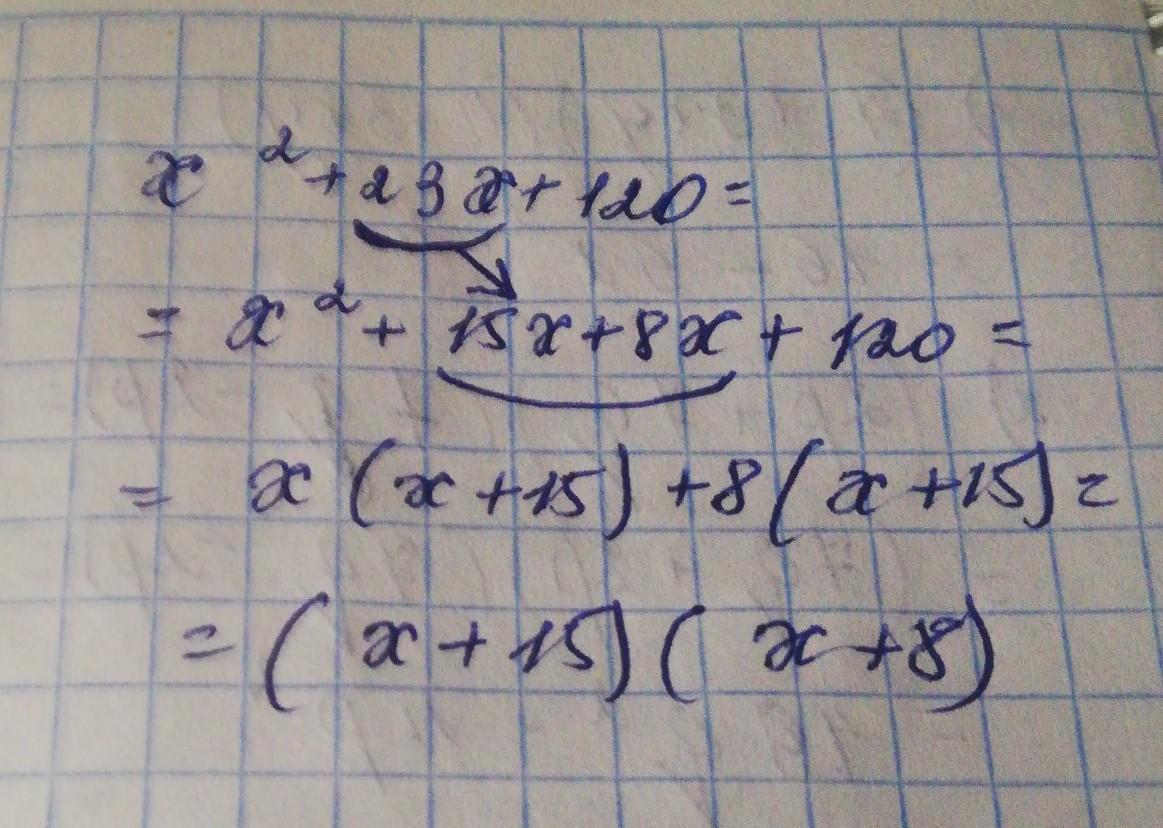 x² + 23x + 120 =
= x² + 15x + 8x + 120 =
= x (x + 15) + 8 (x + 15) =
= (x + 15) (x + 8)